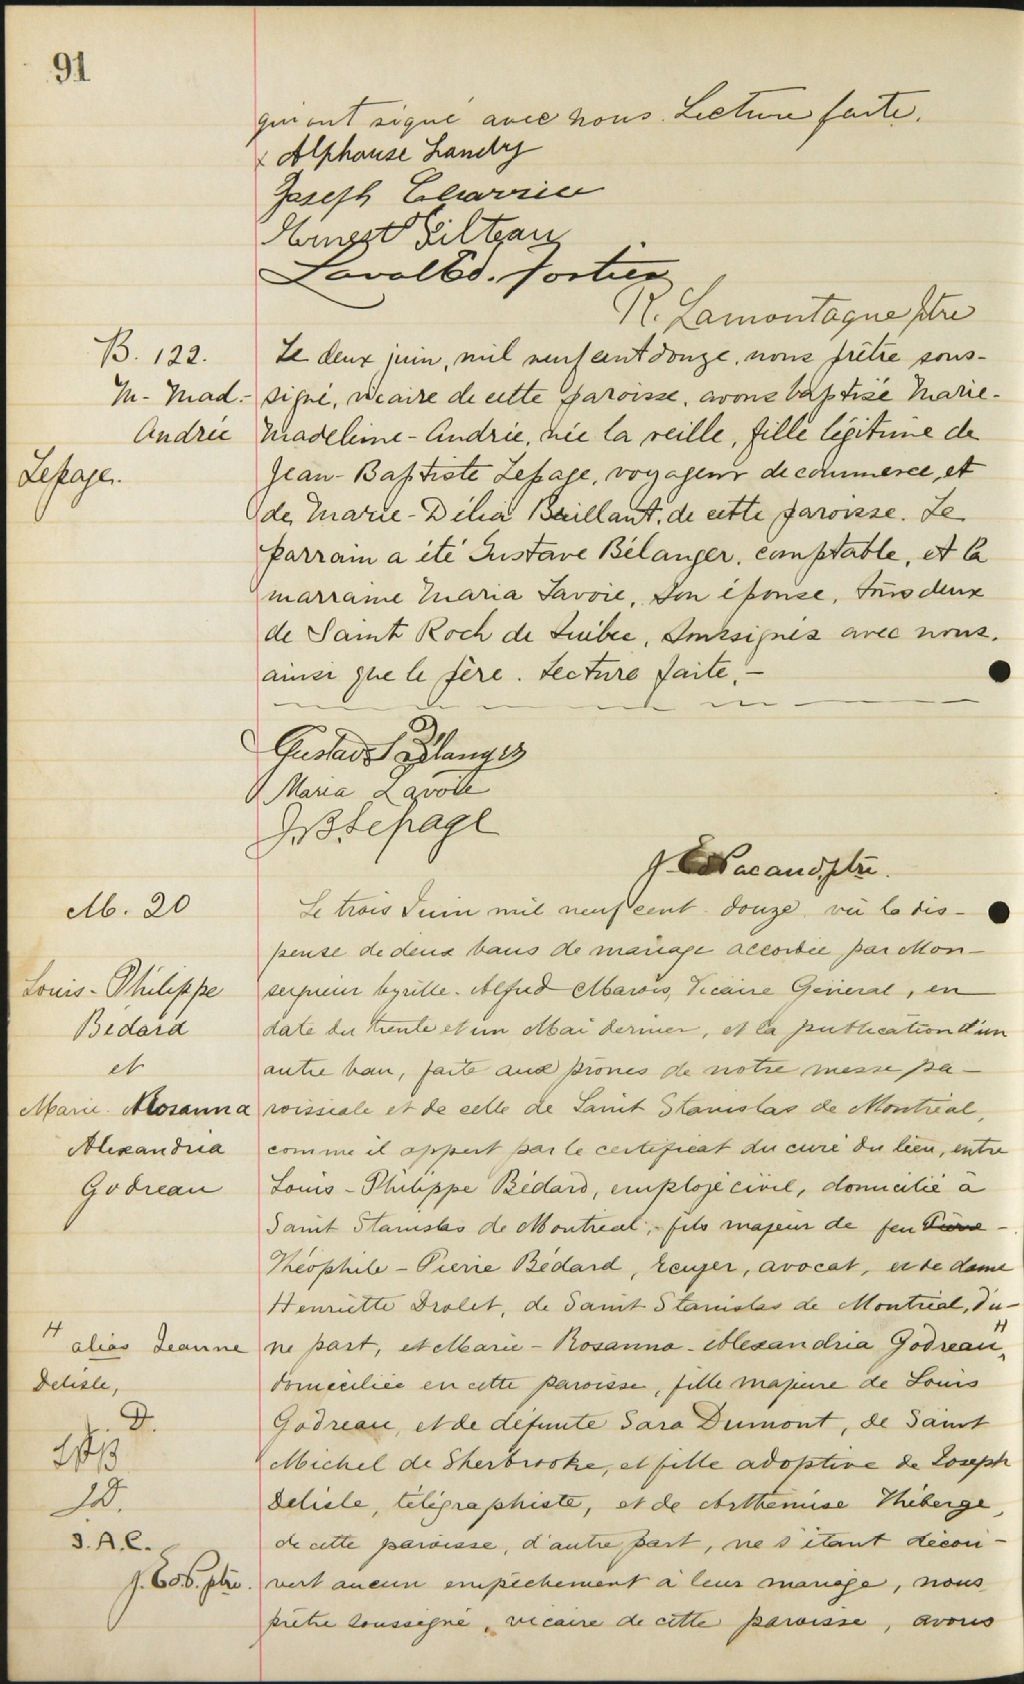 91
qui ont signé avec nous. Lecture faite.
x Alphonse Landry
Joseph
Ernest Filteau
Laval Ed. Fortier
R. Lamontagne ptre
B. 122.
M-Mad.-
Andrée
Lepage.
Le deux juin, mil neuf cent douze, nous prêtre sous-
signé, vicaire de cette paroisse, avons baptisé Marie-
Madeleine-Andrée, née la veille, fille légitime de
Jean-Baptiste Lepage, voyageur de commerce, et
de Marie-Délia Brillant, de cette paroisse. Le
parrain a été Gustave Bélanger, comptable, et la
marraine Maria Lavoie, son épouse, tous deux
de Saint Roch de Québec, soussignés avec nous,
ainsi que le père. Lecture faite.-
Gustave Bélanger
Maria Lavoie
J.B. Lepage
J. Ed Pacaud, ptre.
M. 20
Louis-Philippe
Bédard
et
Marie Rosanna
Alexandria
Godreau
Le trois Juin mil neuf cent douze, vu la dis-
pense de deux bans de mariage accordée par Mon-
seigneur Cyrille-Alfred Marois, Vicaire Général, en
date du trente et un Mai dernier, et la publication d'un
autre ban, faite aux prônes de notre messe pa-
roissiale et de celle de Saint Stanislas de Montréal,
comme il appert par le certificat du curé du lieu, entre
Louis-Philippe Bédard, employé civil, domicilié à
Saint Stanislas de Montréal, fils majeur de feu
Théophile-Pierre Bédard, Ecuyer, avocat, et de dame
Henriette Drolet, de Saint Stanislas de Montréal, d'u-
ne part, et Marie-Rosanna-Alexandria Godreau H,
domiciliée en cette paroisse, fille majeure de Louis
Godreau, et de défunte Sara Dumont, de Saint
Michel de Sherbrooke, et fille adoptive de Joseph
Delisle, télégraphiste, et de Arthémise Théberge,
de cette paroisse, d'autre part, ne s'étant décou-
vert aucun empêchement à leur mariage, nous
prêtre soussigné, vicaire de cette paroisse, avons
H alias Jeanne
Delisle,
J. D.
LPB
J.D.
J.A.C.
J. Ed. P. ptre.